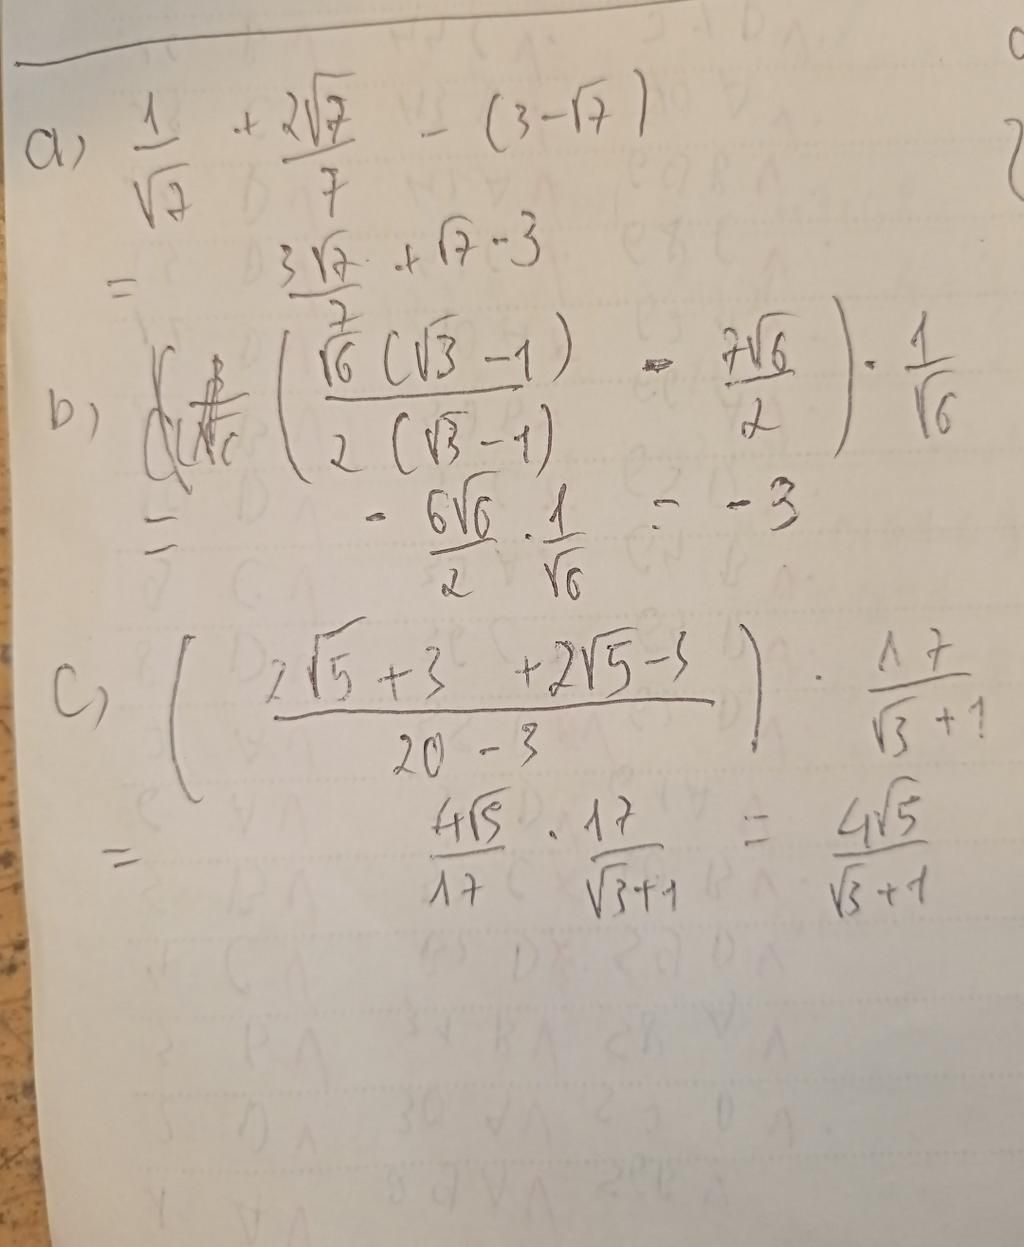 a) 1/√7 + 2√7/7 - (3-√7)
= 3√7/7 + √7 - 3
b) (√6 (√3 - 1)/2 (√3 - 1) - 7√6/2) · 1/√6
= - 6√6/2 · 1/√6 = -3
c) (2√5 + 3 + 2√5 - 3/20 - 3) · 17/√3 + 1
= 4√5/17 · 17/√3+1 = 4√5/√3 + 1